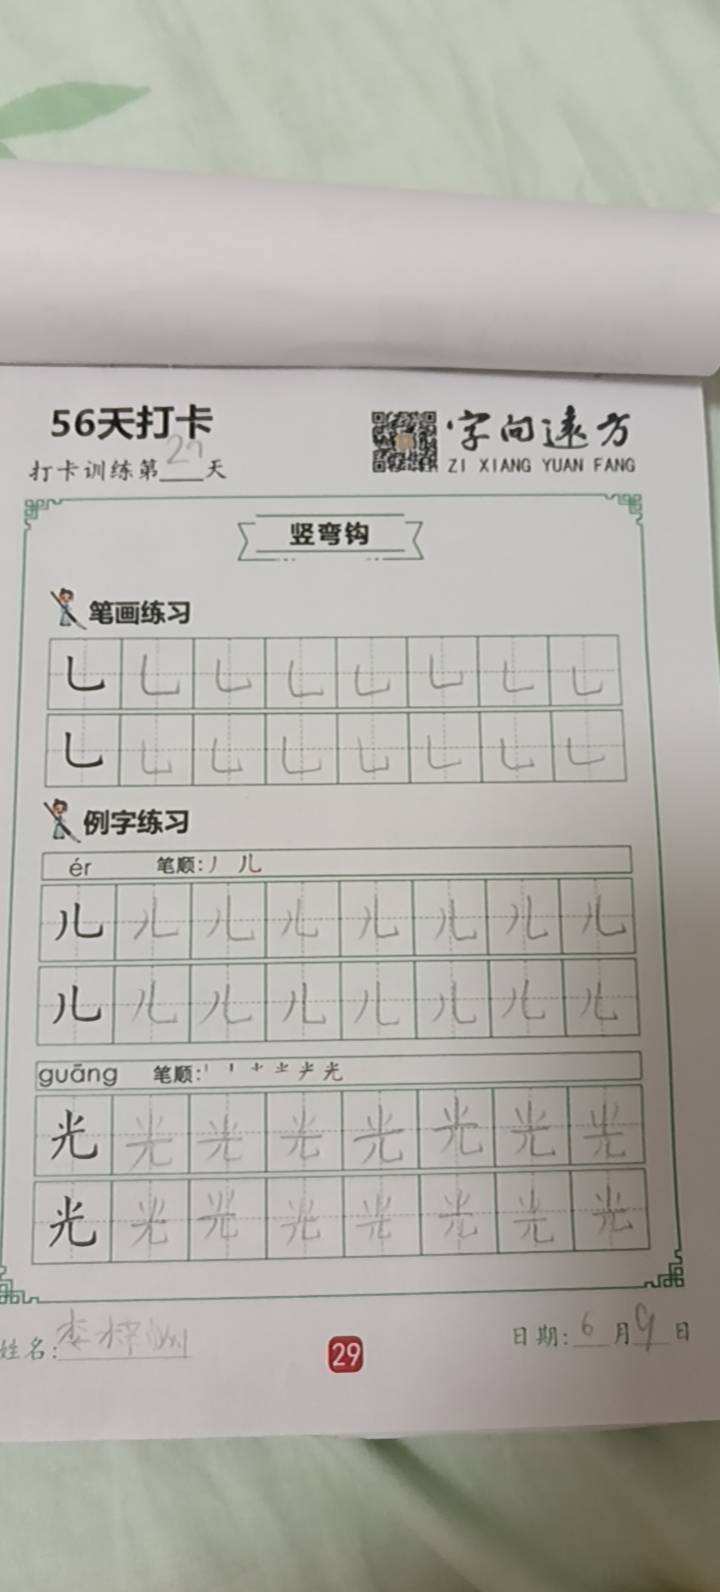 56天打卡
字向远方
打卡训练第27天
ZI XIANG YUAN FANG
竖弯钩
笔画练习
乚 乚 乚 乚 乚 乚 乚 乚
乚 乚 乚 乚 乚 乚 乚 乚
例字练习
ér 笔顺:丿 儿
儿 儿 儿 儿 儿 儿 儿 儿
儿 儿 儿 儿 儿 儿 儿 儿
guāng 笔顺:
光 光 光 光 光 光 光 光
光 光 光 光 光 光 光 光
姓名:李梓渊
29
日期:6月9日